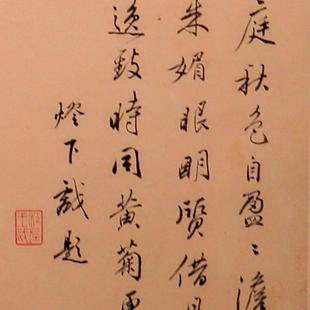 庭秋色自盈〻澹
朱媚眼明質借
逸致時同黃菊
燈下戲題